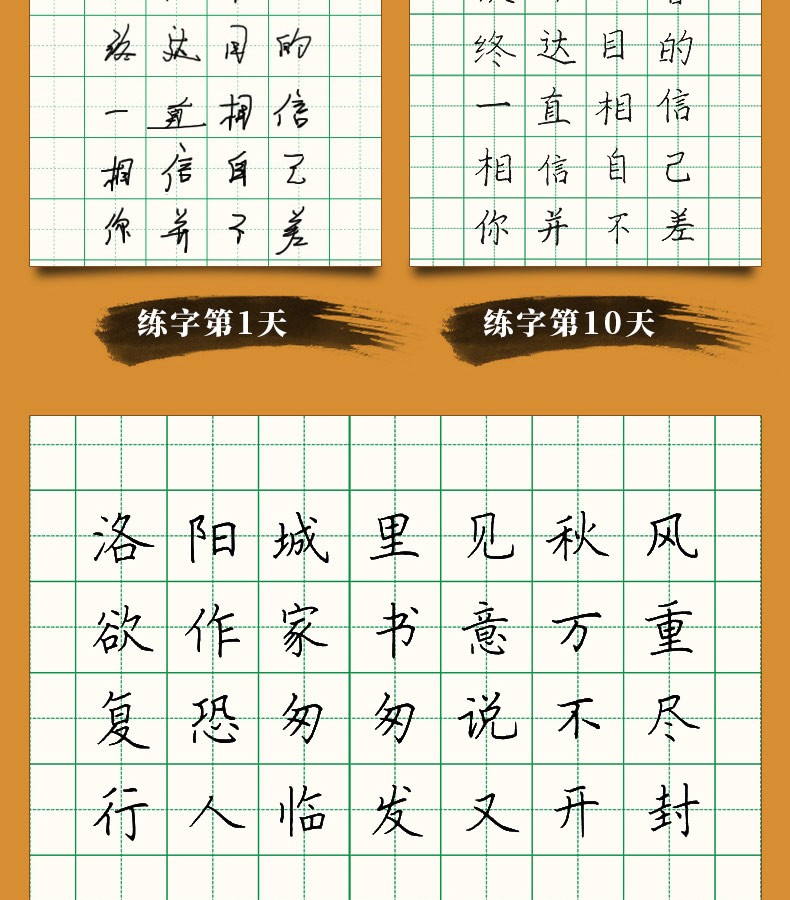 终达目的
一直相信
相信自己
你并不差
练字第1天
终达目的
一直相信
相信自己
你并不差
练字第10天
洛阳城里见秋风
欲作家书意万重
复恐匆匆说不尽
行人临发又开封